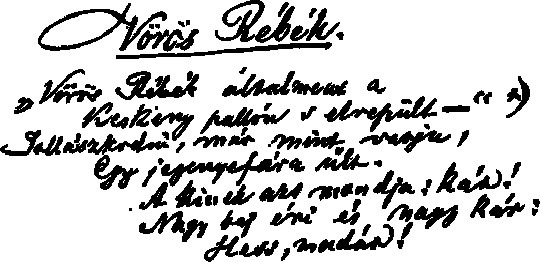 Vörös Rébék.
„Vörös Rébék általment a
Keskeny pallón s elrepült —“ *)
Tollászkodni, már mint varju,
Egy jegenyefára ült.
A kinek azt mondja: kár!
Nagy baj éri és nagy kár:
Hess, madár!